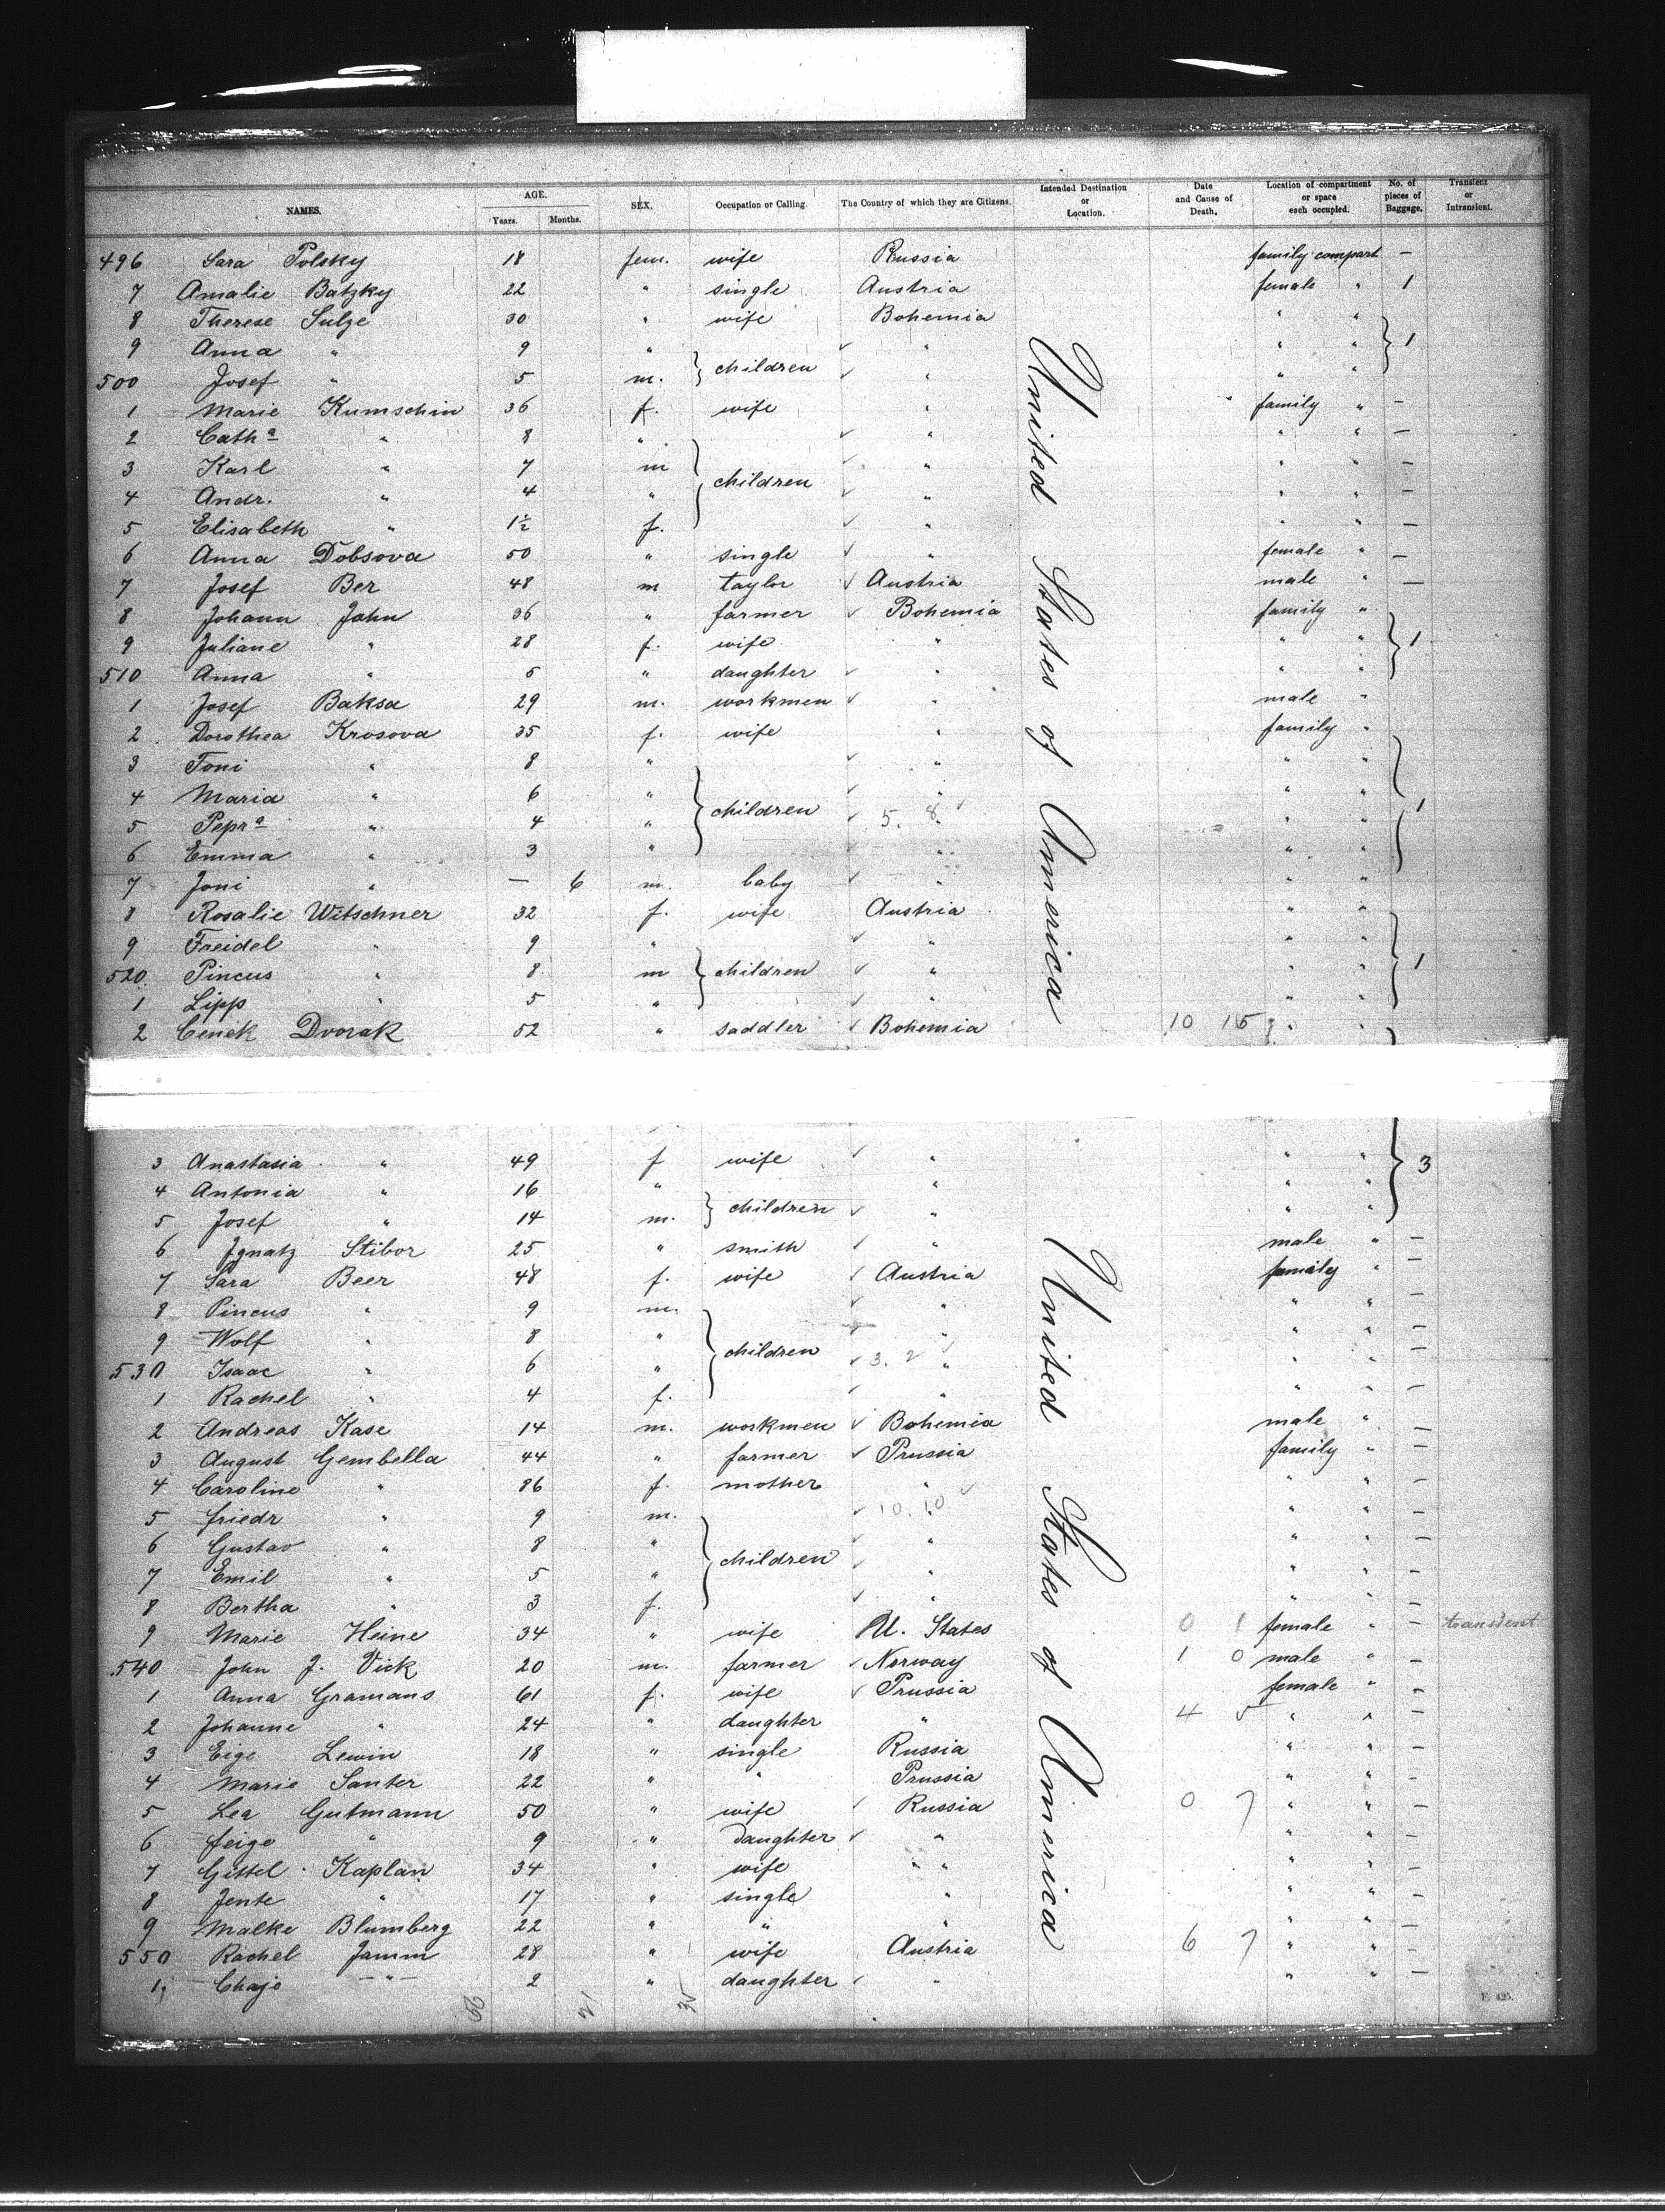 NAMES. AGE. Years. Months. SEX. Occupation or Calling. The Country of which they are Citizens. Intended Destination or Location. Date and Cause of Death. Location of compartment or space each occupied. No. of pieces of Baggage. Transient or Intransient.
496 Sara Polsky 18 fem. wife Russia family compart —
7 Amalie Batzky 22 " single Austria female " 1
8 Therese Sulze 30 " wife Bohemia " "
9 Anna " 9 " children " " " 1
500 Josef " 5 m. " " "
1 Marie Kumschin 36 f. wife " family " —
2 Cathª " 8 " " " " —
3 Karl " 7 m children " " " —
4 Andr. " 4 " " " " —
5 Elisabeth " 1½ f. " " " —
6 Anna Dobsova 50 " single " female " —
7 Josef Ber 48 m taylor Austria male " —
8 Johann Jahn 36 " farmer Bohemia family "
9 Juliane " 28 f. wife " " " 1
510 Anna " 5 " daughter " " "
1 Josef Baksa 29 m. workmen " male "
2 Dorothea Krosova 35 f. wife " family "
3 Toni " 8 " " " "
4 Maria " 6 " children " " " 1
5 Peprª " 4 " 5. 8 " " "
6 Emma " 3 " " " "
7 Joni " — 6 m. baby " " "
8 Rosalie Witschner 32 f. wife Austria " "
9 Freidel " 9 " " " "
520 Pincus " 8 m children " " " 1
1 Lipp " 5 " " " "
2 Cenek Dvorak 52 " saddler Bohemia 10 15 " "
United States of America
3 Anastasia " 49 f wife " " " 3
4 Antonia " 16 " children " " "
5 Josef " 14 m. " " "
6 Ignatz Stibor 25 " smith " male " —
7 Sara Beer 48 f. wife Austria family " —
8 Pincus " 9 m. " " " —
9 Wolf " 8 " children " " " —
530 Isaac " 6 " 3. 2 " " " —
1 Rachel " 4 f. " " " —
2 Andreas Kase 14 m. workmen Bohemia male " —
3 August Gembella 44 " farmer Prussia family " —
4 Caroline " 86 f. mother " " " —
5 Friedr " 9 m. 10. 10 " " " —
6 Gustav " 8 " children " " " —
7 Emil " 5 " " " " —
8 Bertha " 3 f. " " " —
9 Marie Heine 34 " wife U. States 0 1 female " — transient
540 John J. Vick 20 m. farmer Norway 1 0 male " —
1 Anna Gramans 61 f. wife Prussia female " —
2 Johanne " 24 " daughter " 4 5 " " —
3 Eige Lewin 18 " single Russia " " —
4 Marie Santer 22 " " Prussia " " —
5 Lea Gutmann 50 " wife Russia 0 7 " " —
6 Feige " 9 " daughter " " " —
7 Gittel Kaplan 34 " wife " " " " —
8 Jente " 17 " single " " " —
9 Malke Blumberg 22 " " " " " —
550 Rachel Jamm 28 " wife Austria 6 7 " " —
1 Chaje " 2 " daughter " " " —
United States of America
F. 425.